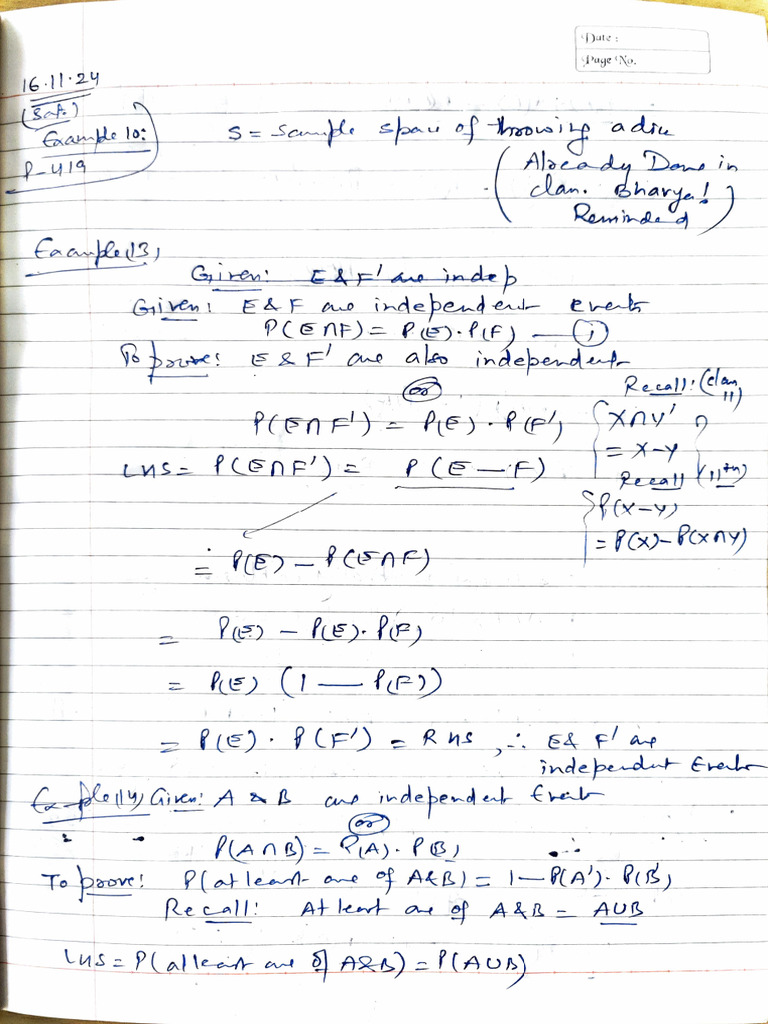 Date :
Page No.
16.11.24
(Sat.)
Example 10:
P-419
S = Sample space of throwing a dice
(Already Done in
class. Bhavya!
Reminded)
Example(13)
Given: E & F' are indep
Given: E & F are independent events
P(E∩F) = P(E)·P(F) — (i)
To prove: E & F' are also independent
(or)
P(E∩F') = P(E)·P(F')
Recall: (class 11)
{X∩Y'
= X–Y}
LHS = P(E∩F') = P(E–F)
Recall (11th)
{P(X–Y)
= P(X)–P(X∩Y)
= P(E) – P(E∩F)
= P(E) – P(E)·P(F)
= P(E) (1 — P(F))
= P(E)·P(F') = RHS, ∴ E & F' are
independent Events
Example(14) Given: A & B are independent Event
(or)
P(A∩B) = P(A)·P(B)
To prove: P(at least one of A&B) = 1–P(A')·P(B')
Recall: At least one of A&B = A∪B
LHS = P(at least one of A&B) = P(A∪B)